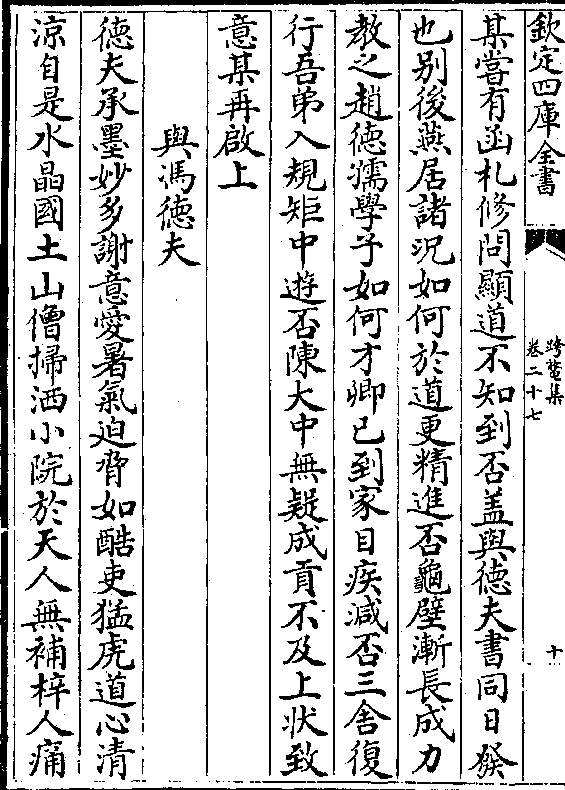 欽定四庫全書
跨鼇集
卷二十七
十
某嘗有函札修問顯道不知到否盖與徳夫書同日發
也别後燕居諸况如何於道更精進否龜壁漸長成力
教之趙徳孺學子如何才卿已到家目疾減否三舍復
行吾弟入規矩中遊否陳大中無疑成貢不及上状致
意某再啟上
與馮徳夫
徳夫承墨妙多謝意愛暑氣迫脅如酷吏猛虎道心清
涼自是水晶國土山僧掃洒小院於天人無補梓人痛